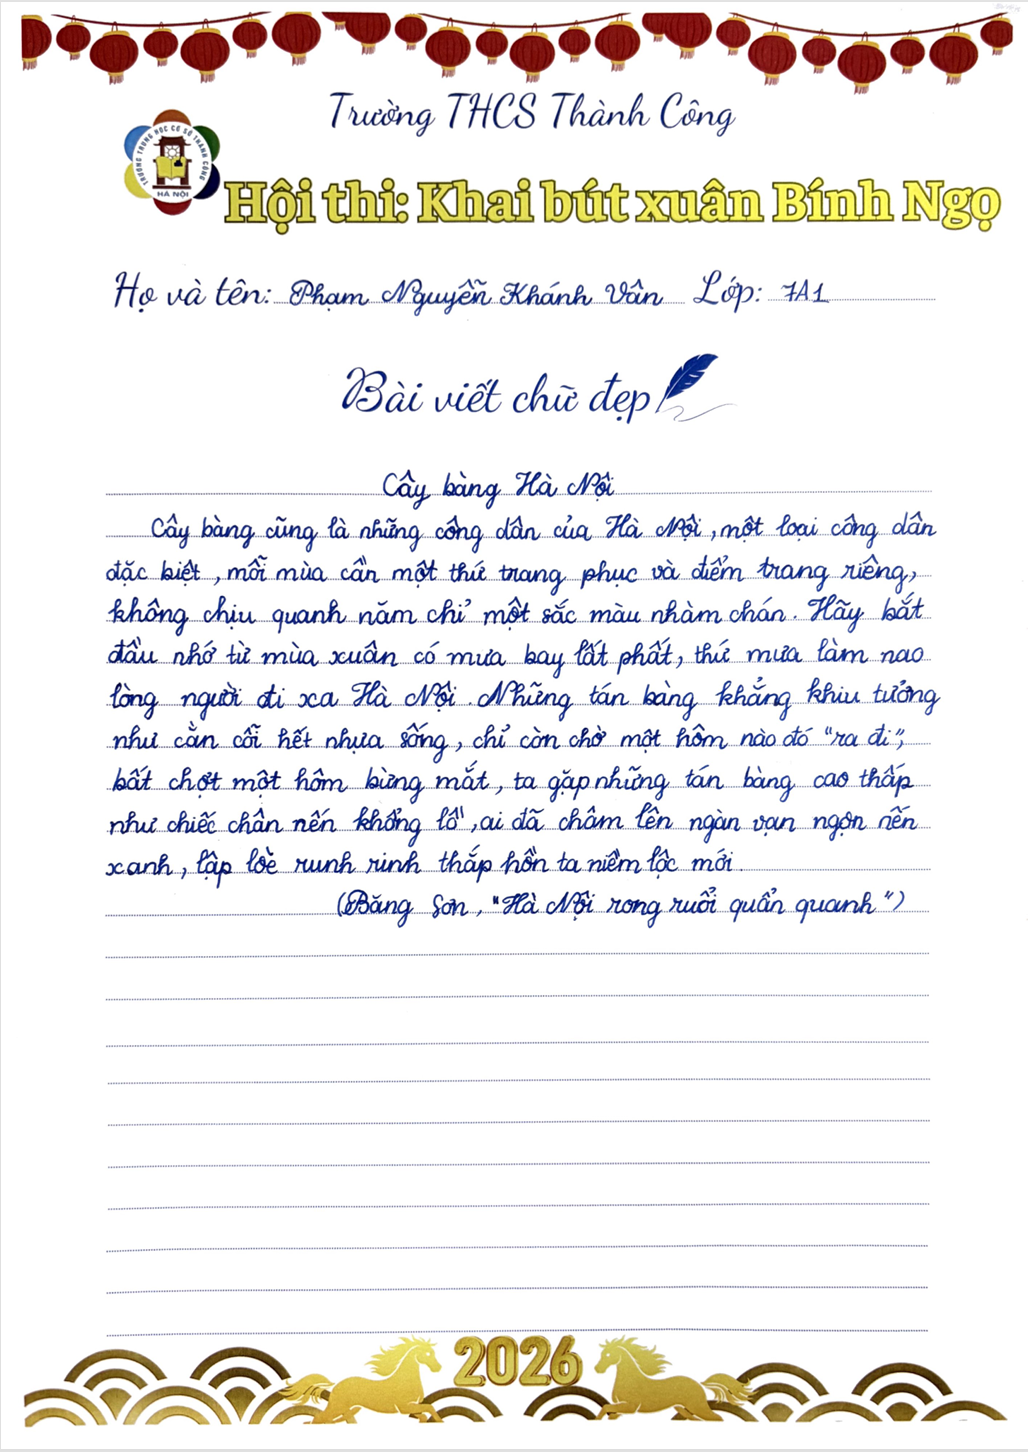 Trường THCS Thành Công
TRƯỜNG TRUNG HỌC CƠ SỞ THÀNH CÔNG
HÀ NỘI
Hội thi: Khai bút xuân Bính Ngọ
Họ và tên: Phạm Nguyễn Khánh Vân Lớp: 7A1
Bài viết chữ đẹp
Cây bàng Hà Nội
Cây bàng cũng là những công dân của Hà Nội, một loại công dân
đặc biệt, mỗi mùa cần một thứ trang phục và điểm trang riêng,
không chịu quanh năm chỉ một sắc màu nhàm chán. Hãy bắt
đầu nhớ từ mùa xuân có mưa bay lất phất, thứ mưa làm nao
lòng người đi xa Hà Nội. Những tán bàng khẳng khiu tưởng
như cằn cỗi hết nhựa sống, chỉ còn chờ một hôm nào đó "ra đi",
bất chợt một hôm bừng mắt, ta gặp những tán bàng cao thấp
như chiếc chân nến khổng lồ", ai đã châm lên ngàn vạn ngọn nến
xanh, lập lòe runh rinh thắp hồn ta niềm lộc mới.
(Băng Sơn, "Hà Nội rong ruổi quẩn quanh")
2026